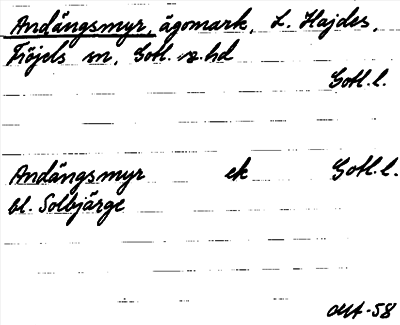 Andängsmyr, ägomark, L. Hajdes,
Fröjels sn, Gotl. s. hd
Gotl. l.
Andängsmyr ek Gotl. l.
bl. Solbjärge
okt -58